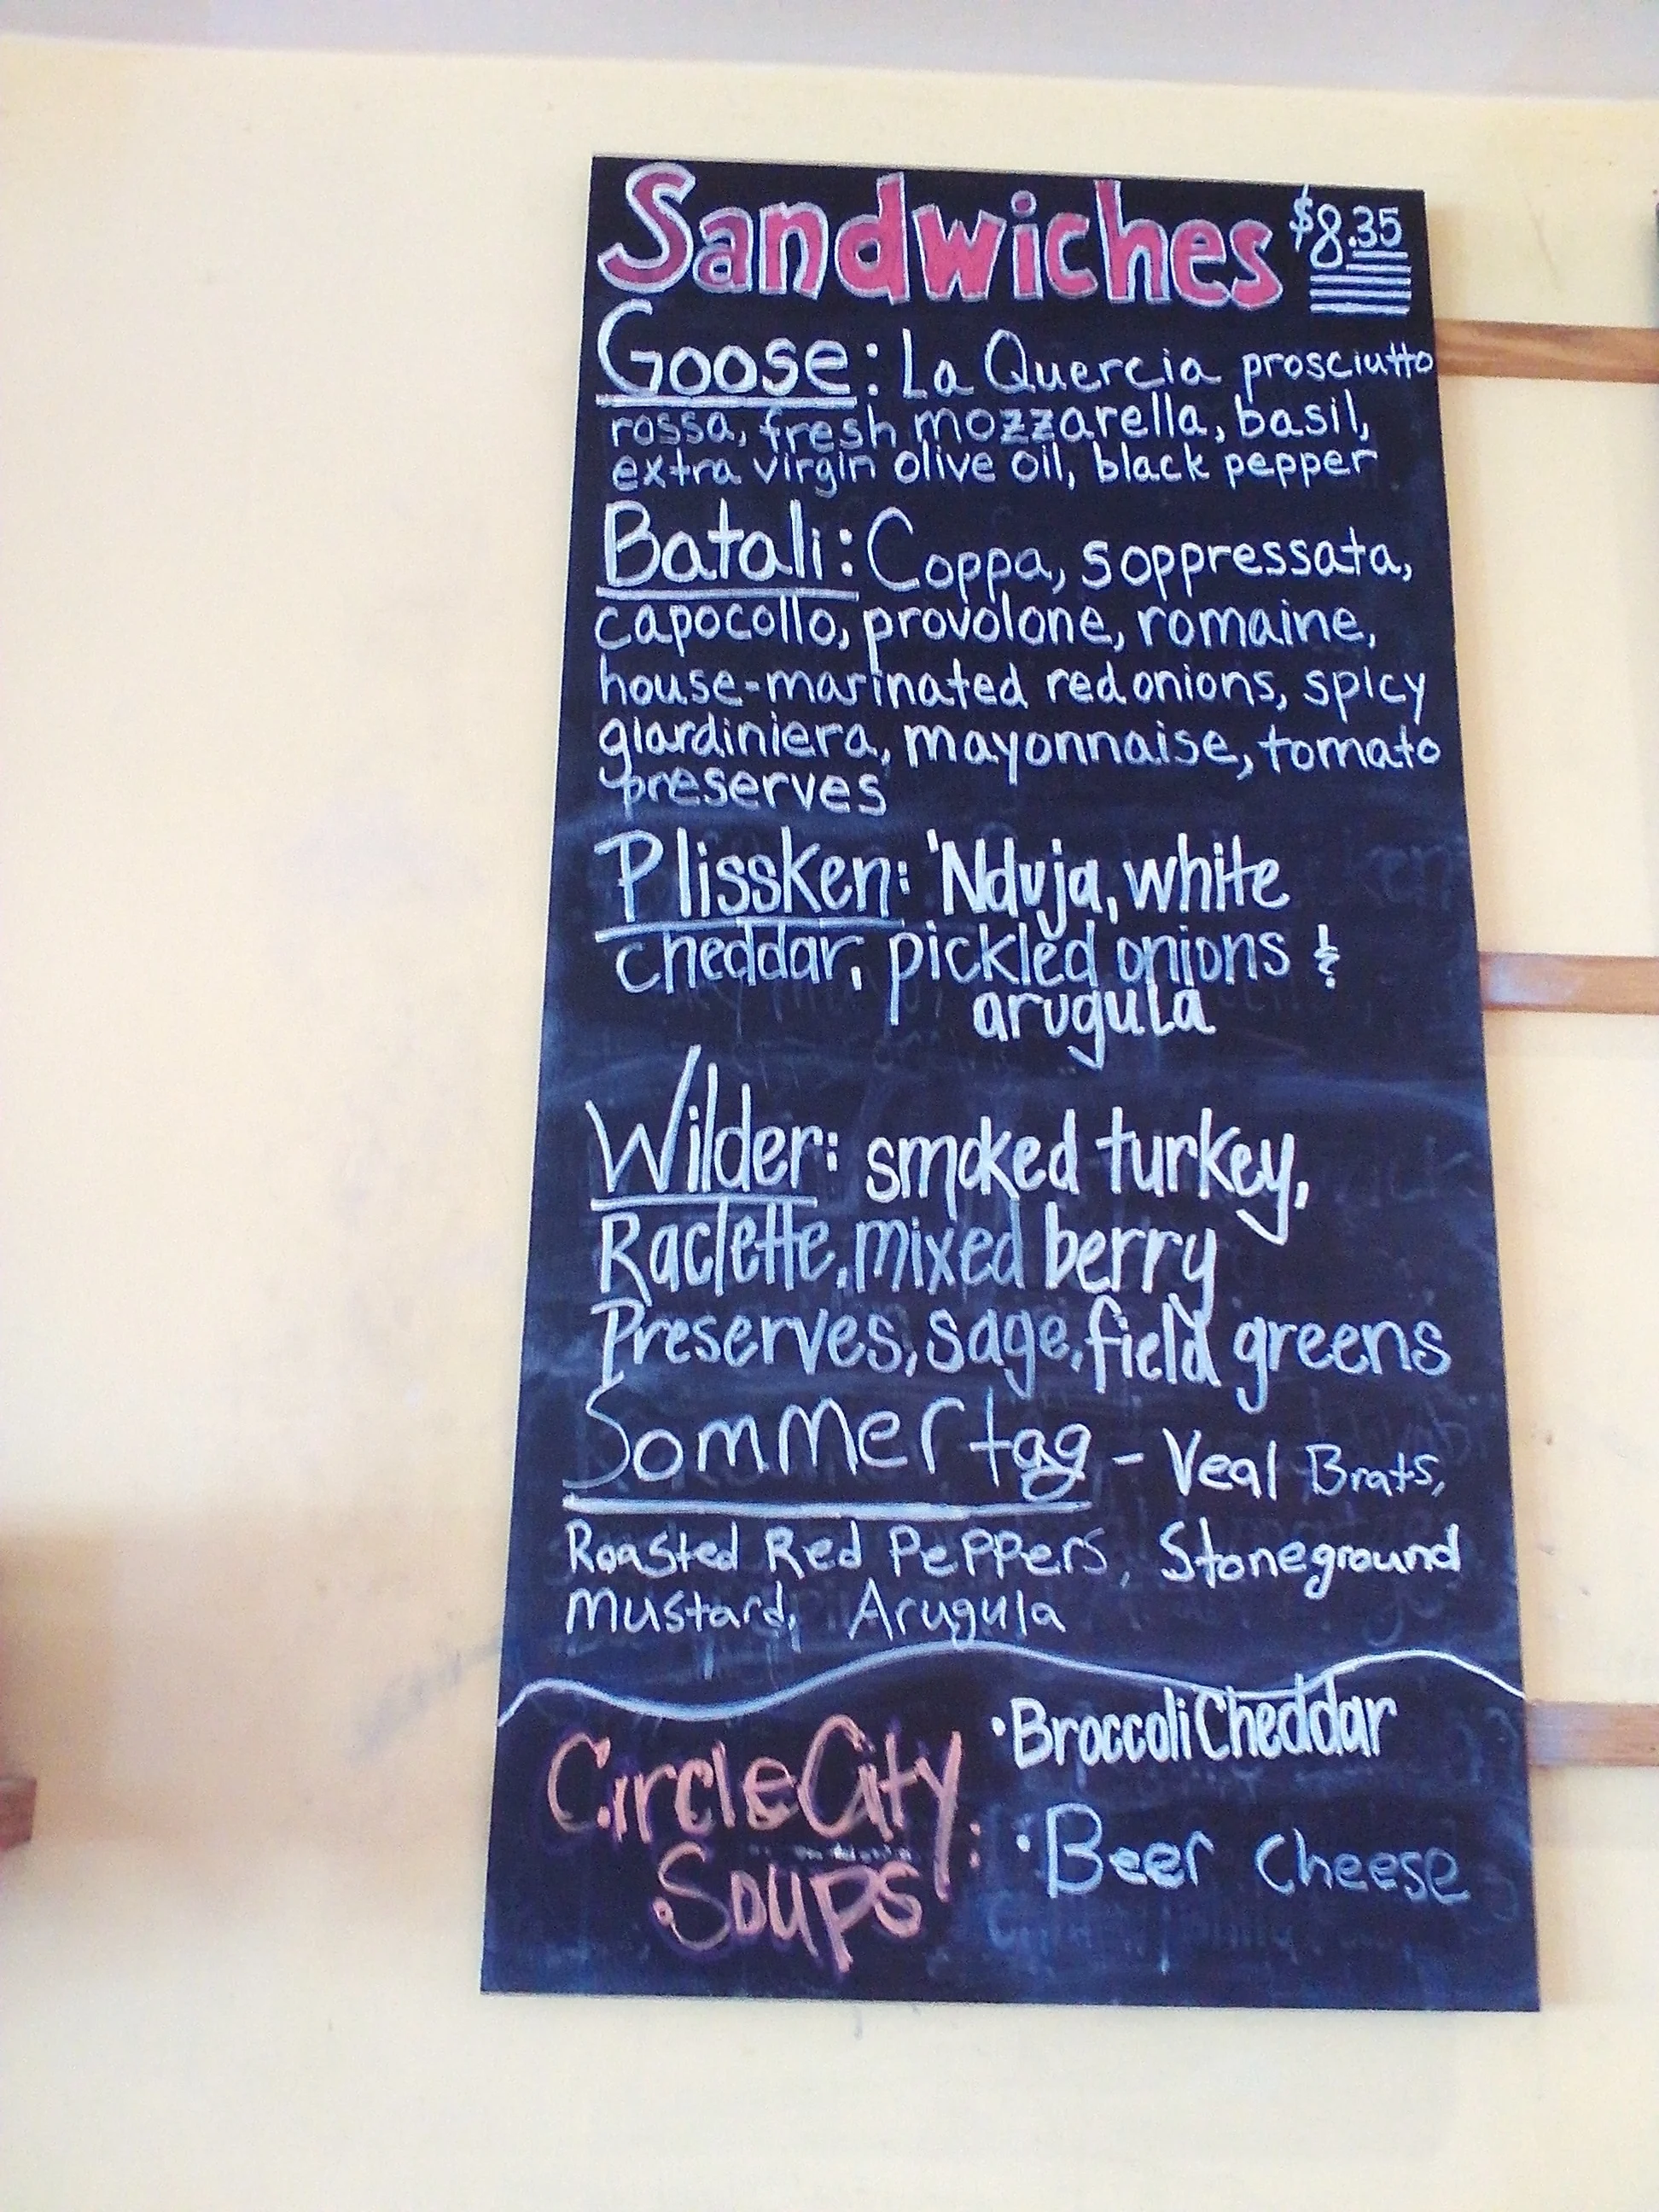 Sandwiches $8.35
Goose: La Quercia prosciutto
rossa, fresh mozzarella, basil,
extra virgin olive oil, black pepper
Batali: Coppa, soppressata,
capocollo, provolone, romaine,
house-marinated red onions, spicy
giardiniera, mayonnaise, tomato
preserves
Plissken: 'Nduja, white
cheddar, pickled onions &
arugula
Wilder: smoked turkey,
Raclette, mixed berry
Preserves, sage, field greens
Sommer tag - Veal Brats,
Roasted Red Peppers, Stoneground
Mustard, Arugula
Circle City
Soups:
• Broccoli Cheddar
• Beer Cheese